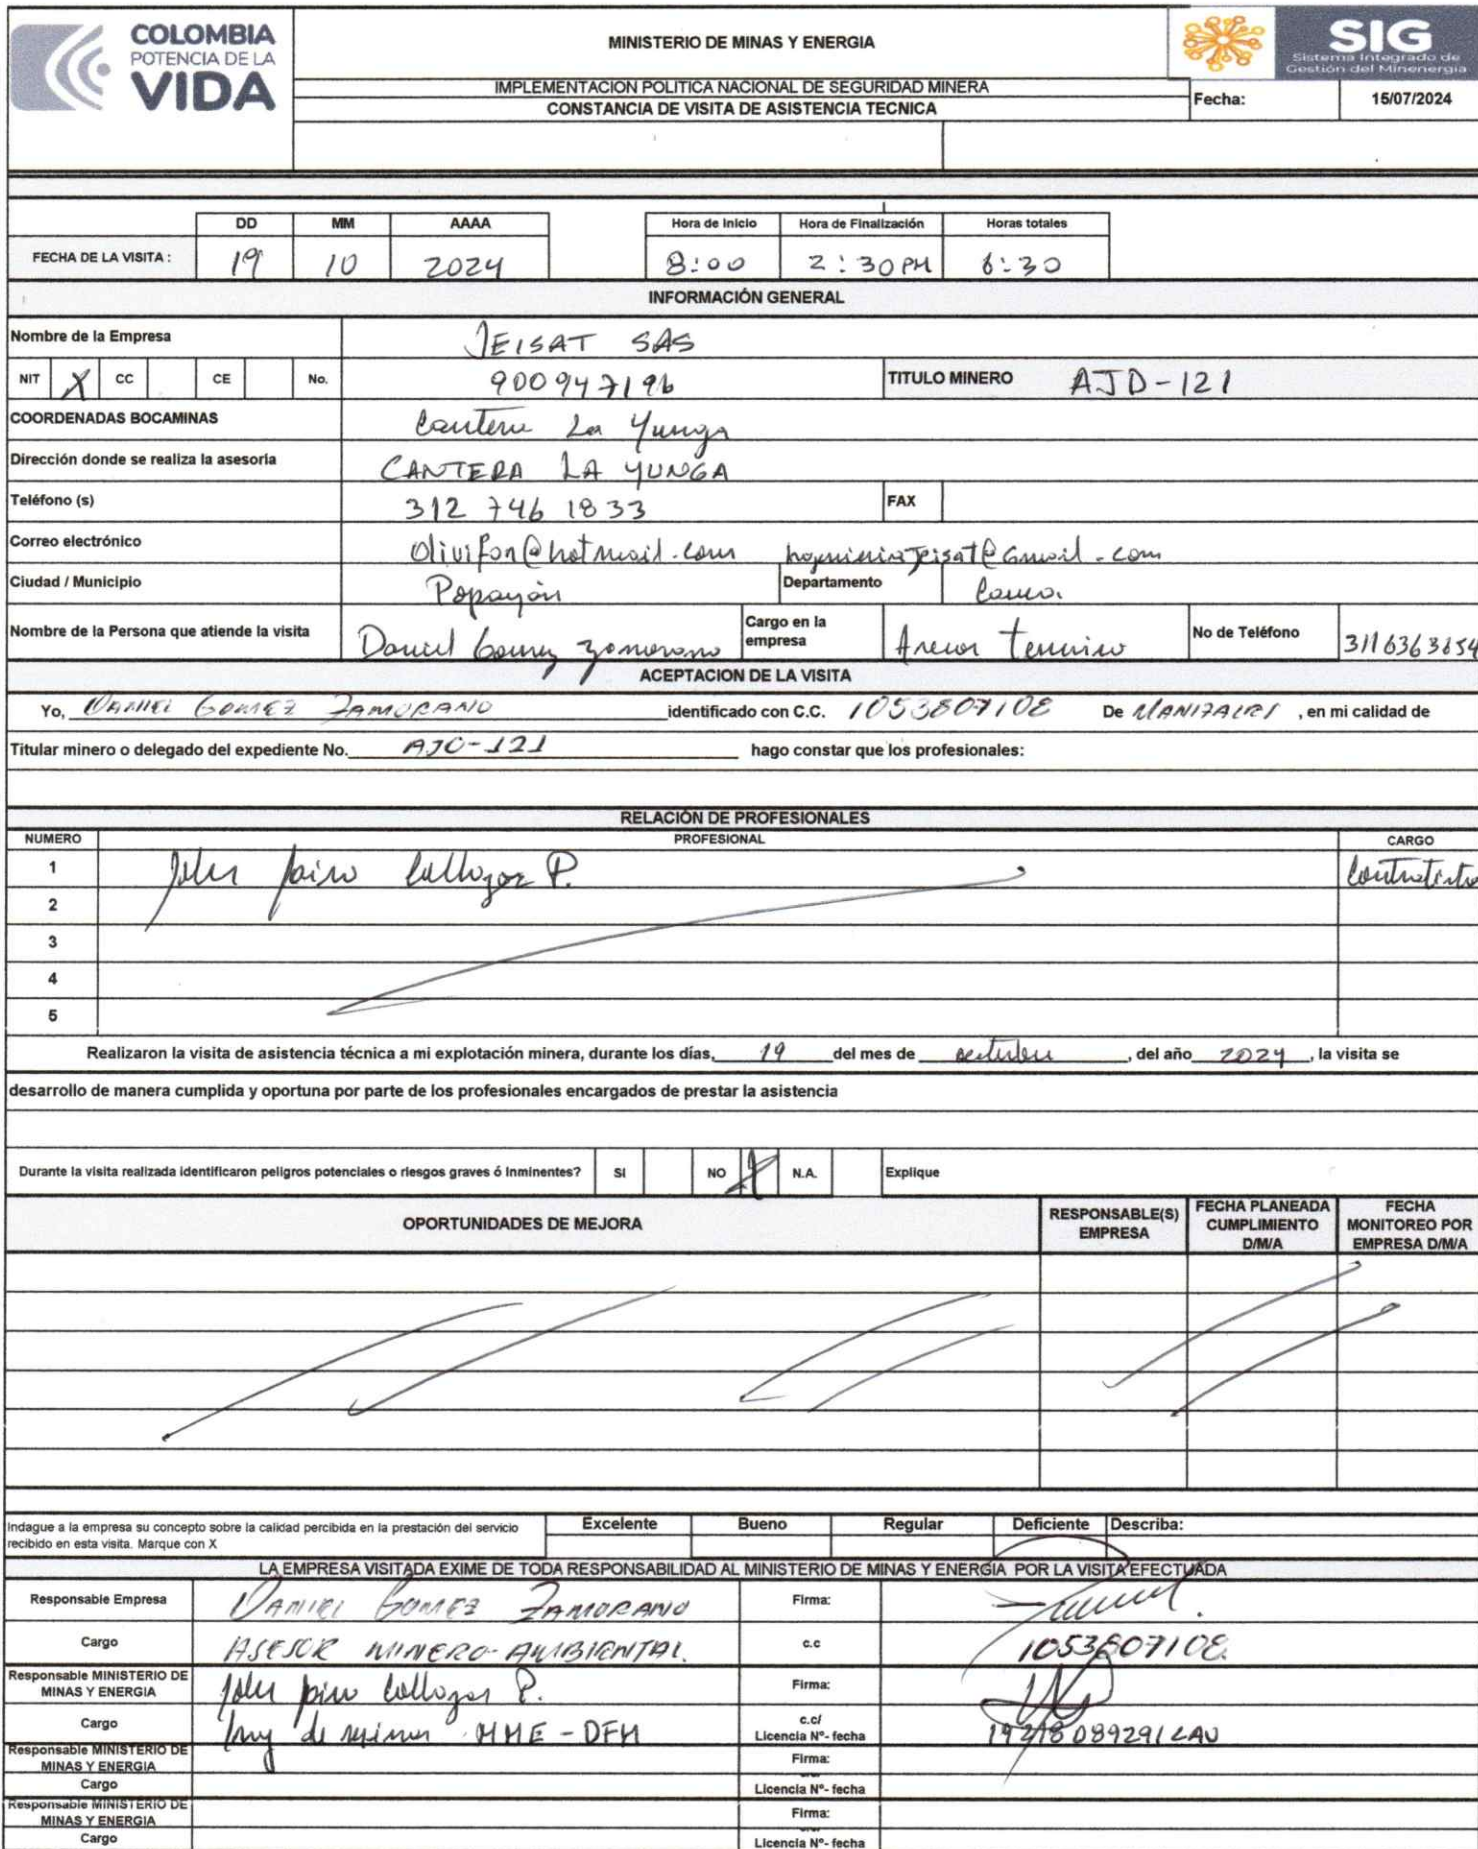 COLOMBIA
POTENCIA DE LA
VIDA
MINISTERIO DE MINAS Y ENERGIA
SIG
Sistema Integrado de
Gestión del Minenergía
IMPLEMENTACION POLITICA NACIONAL DE SEGURIDAD MINERA
CONSTANCIA DE VISITA DE ASISTENCIA TECNICA
Fecha: 15/07/2024
DD MM AAAA Hora de Inicio Hora de Finalización Horas totales
FECHA DE LA VISITA : 19 10 2024 8:00 2:30 PM 6:30
INFORMACIÓN GENERAL
Nombre de la Empresa JEISAT SAS
NIT X CC CE No. 900947196 TITULO MINERO AJD-121
COORDENADAS BOCAMINAS Cantera La Yunga
Dirección donde se realiza la asesoria CANTERA LA YUNGA
Teléfono (s) 312 746 1833 FAX
Correo electrónico Olivifon@hotmail.com
Ciudad / Municipio Popayán Departamento Cauca
Nombre de la Persona que atiende la visita Daniel Gomez Zamorano Cargo en la empresa No de Teléfono 3116363654
ACEPTACION DE LA VISITA
Yo, DANIEL GOMEZ ZAMORANO identificado con C.C. 1053807108 De MANIZALES , en mi calidad de
Titular minero o delegado del expediente No. AJD-121 hago constar que los profesionales:
RELACIÓN DE PROFESIONALES
NUMERO PROFESIONAL CARGO
1 John Jairo Collazos P. Contratista
2
3
4
5
Realizaron la visita de asistencia técnica a mi explotación minera, durante los días, 19 del mes de octubre , del año 2024 , la visita se
desarrollo de manera cumplida y oportuna por parte de los profesionales encargados de prestar la asistencia
Durante la visita realizada identificaron peligros potenciales o riesgos graves ó Inminentes? SI NO X N.A. Explique
OPORTUNIDADES DE MEJORA RESPONSABLE(S) EMPRESA FECHA PLANEADA CUMPLIMIENTO D/M/A FECHA MONITOREO POR EMPRESA D/M/A
Indague a la empresa su concepto sobre la calidad percibida en la prestación del servicio
recibido en esta visita. Marque con X
Excelente Bueno Regular Deficiente Describa:
LA EMPRESA VISITADA EXIME DE TODA RESPONSABILIDAD AL MINISTERIO DE MINAS Y ENERGIA POR LA VISITA EFECTUADA
Responsable Empresa DANIEL GOMEZ ZAMORANO Firma:
Cargo ASESOR MINERO-AMBIENTAL. c.c 1053807108
Responsable MINISTERIO DE MINAS Y ENERGIA John Jairo Collazos P. Firma:
Cargo Ing de minas MME - DFM c.c/ Licencia Nº- fecha
Responsable MINISTERIO DE MINAS Y ENERGIA Firma:
Cargo Licencia Nº- fecha
Responsable MINISTERIO DE MINAS Y ENERGIA Firma:
Cargo Licencia Nº- fecha